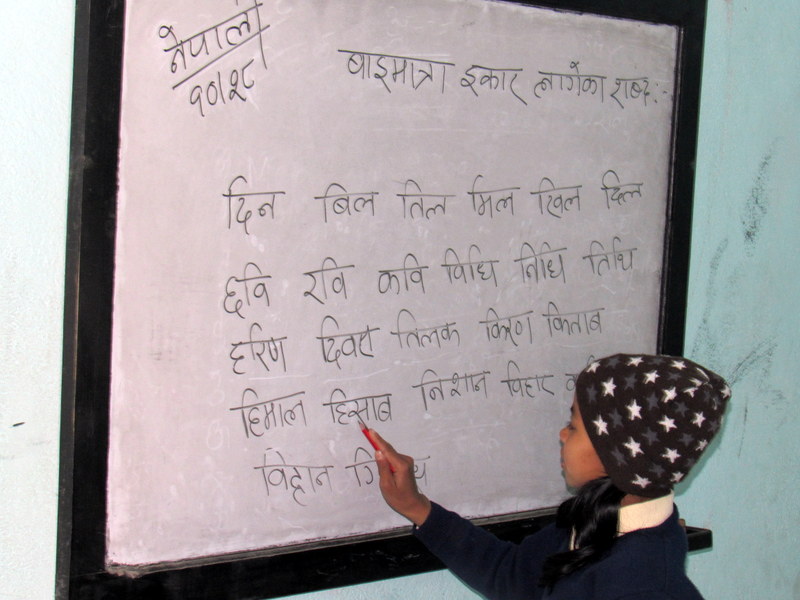 नेपाली
१०।५८
बाइमात्रा इकार लागेका शब्द :-
दिन बिल तिल मिल खिल दिल
छवि रवि कवि विधि निधि तिथि
हरिण दिवस तिलक किरण किताब
हिमाल हिसाब निशान विहार
विहान